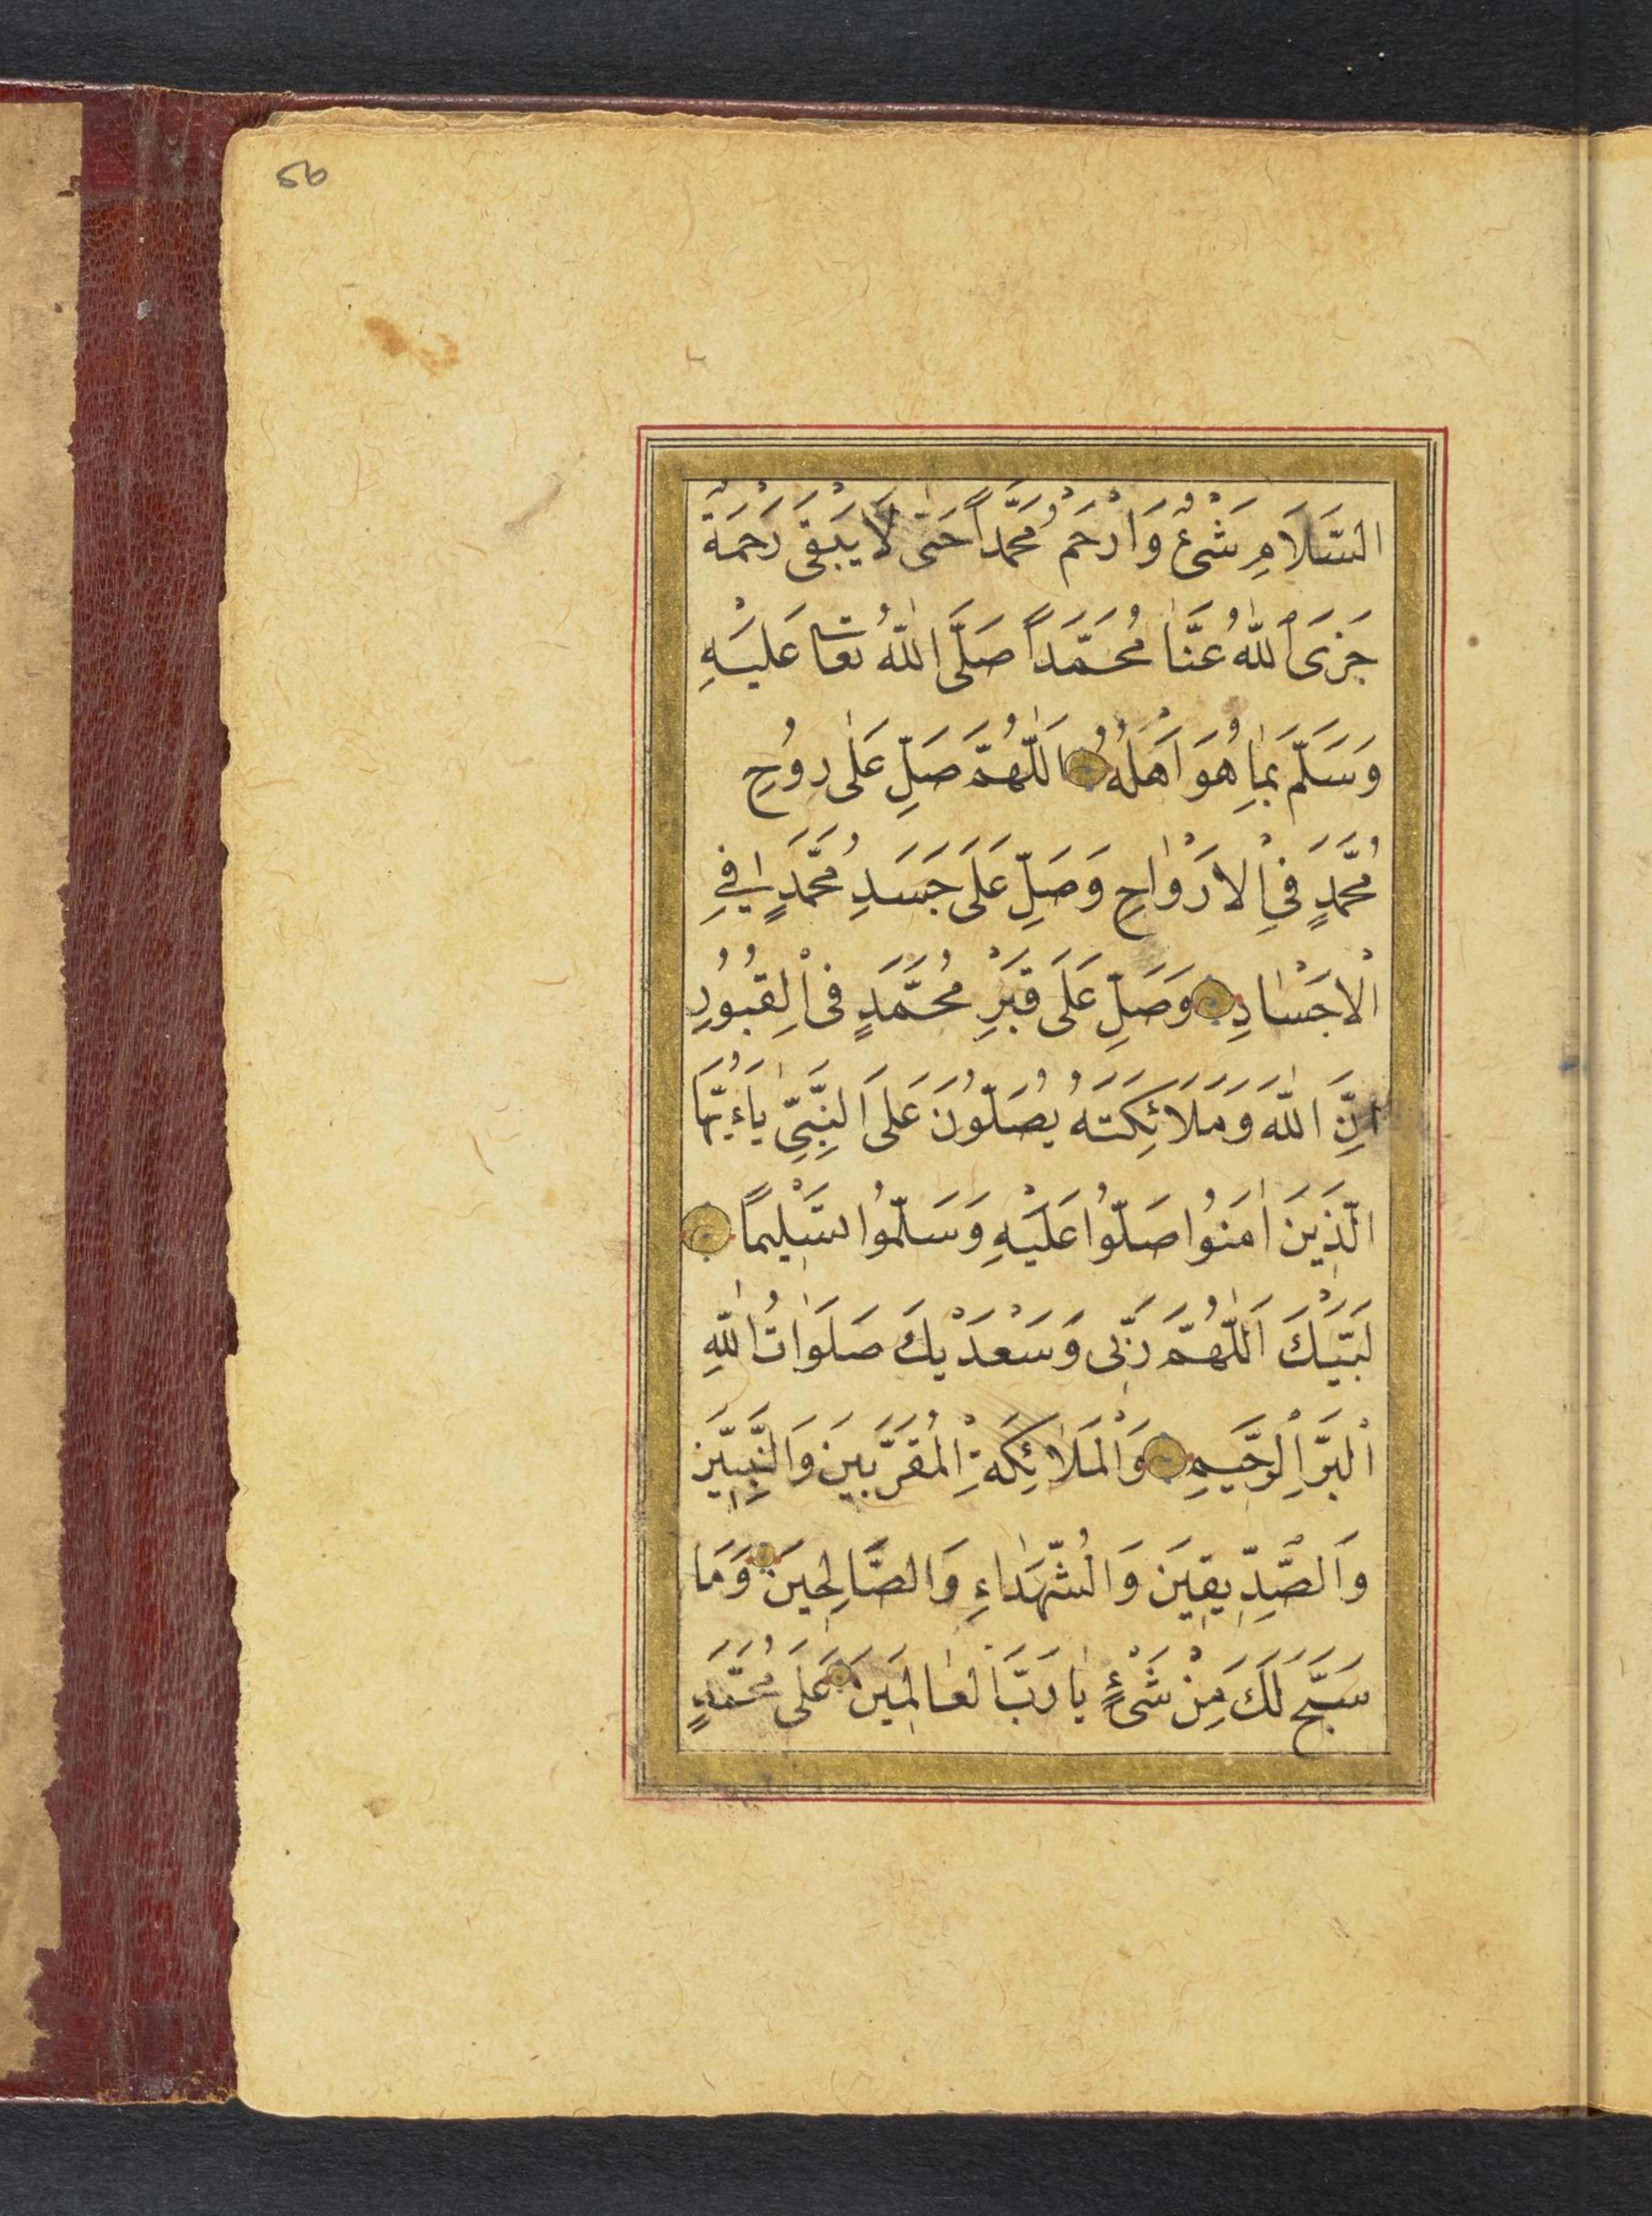 56
السَّلَامِ شَىْءٌ وَارْحَمْ مُحَمَّداً حَتّٰى لَا يَبْقٰى رَحْمَةٌ
جَزَى اللّٰهُ عَنَّا مُحَمَّدَاً صَلَّى اللّٰهُ تعا عَلَيْهِ
وَسَلَّمَ بِمَا هُوَ اَهْلُهُ اَللّٰهُمَّ صَلِّ عَلٰى رُوحِ
مُحَمَّدٍ فِى الْاَرْوٰاحِ وَصَلِّ عَلَى جَسَدِ مُحَمَّدٍ فِى
الْاَجْسٰادِ وَصَلِّ عَلَى قَبْرِ مُحَمَّدٍ فِى الْقُبُورِ
اِنَّ اللّٰهَ وَمَلَائِكَتَهُ يُصَلُّونَ عَلَى النَّبِىِّ يَاءَيُّهَا
الَّذِينَ اٰمَنُوا صَلُّوا عَلَيْهِ وَسَلِّمُوا تَسْلِيمًا
لَبَّيْكَ اَللّٰهُمَّ رَبِّى وَسَعْدَيْكَ صَلَوَاتُ اللّٰهِ
الْبَرِّ الرَّحِيمِ وَالْمَلَائِكَةِ الْمُقَرَّبِينَ وَالنَّبِيِّينَ
وَالصِّدِّيقِينَ وَالشُّهَدَاءِ وَالصَّالِحِينَ وَمَا
سَبَّحَ لَكَ مِنْ شَىْءٍ يٰا رَبَّ الْعٰالَمِينَ عَلَى مُحَمَّدٍ